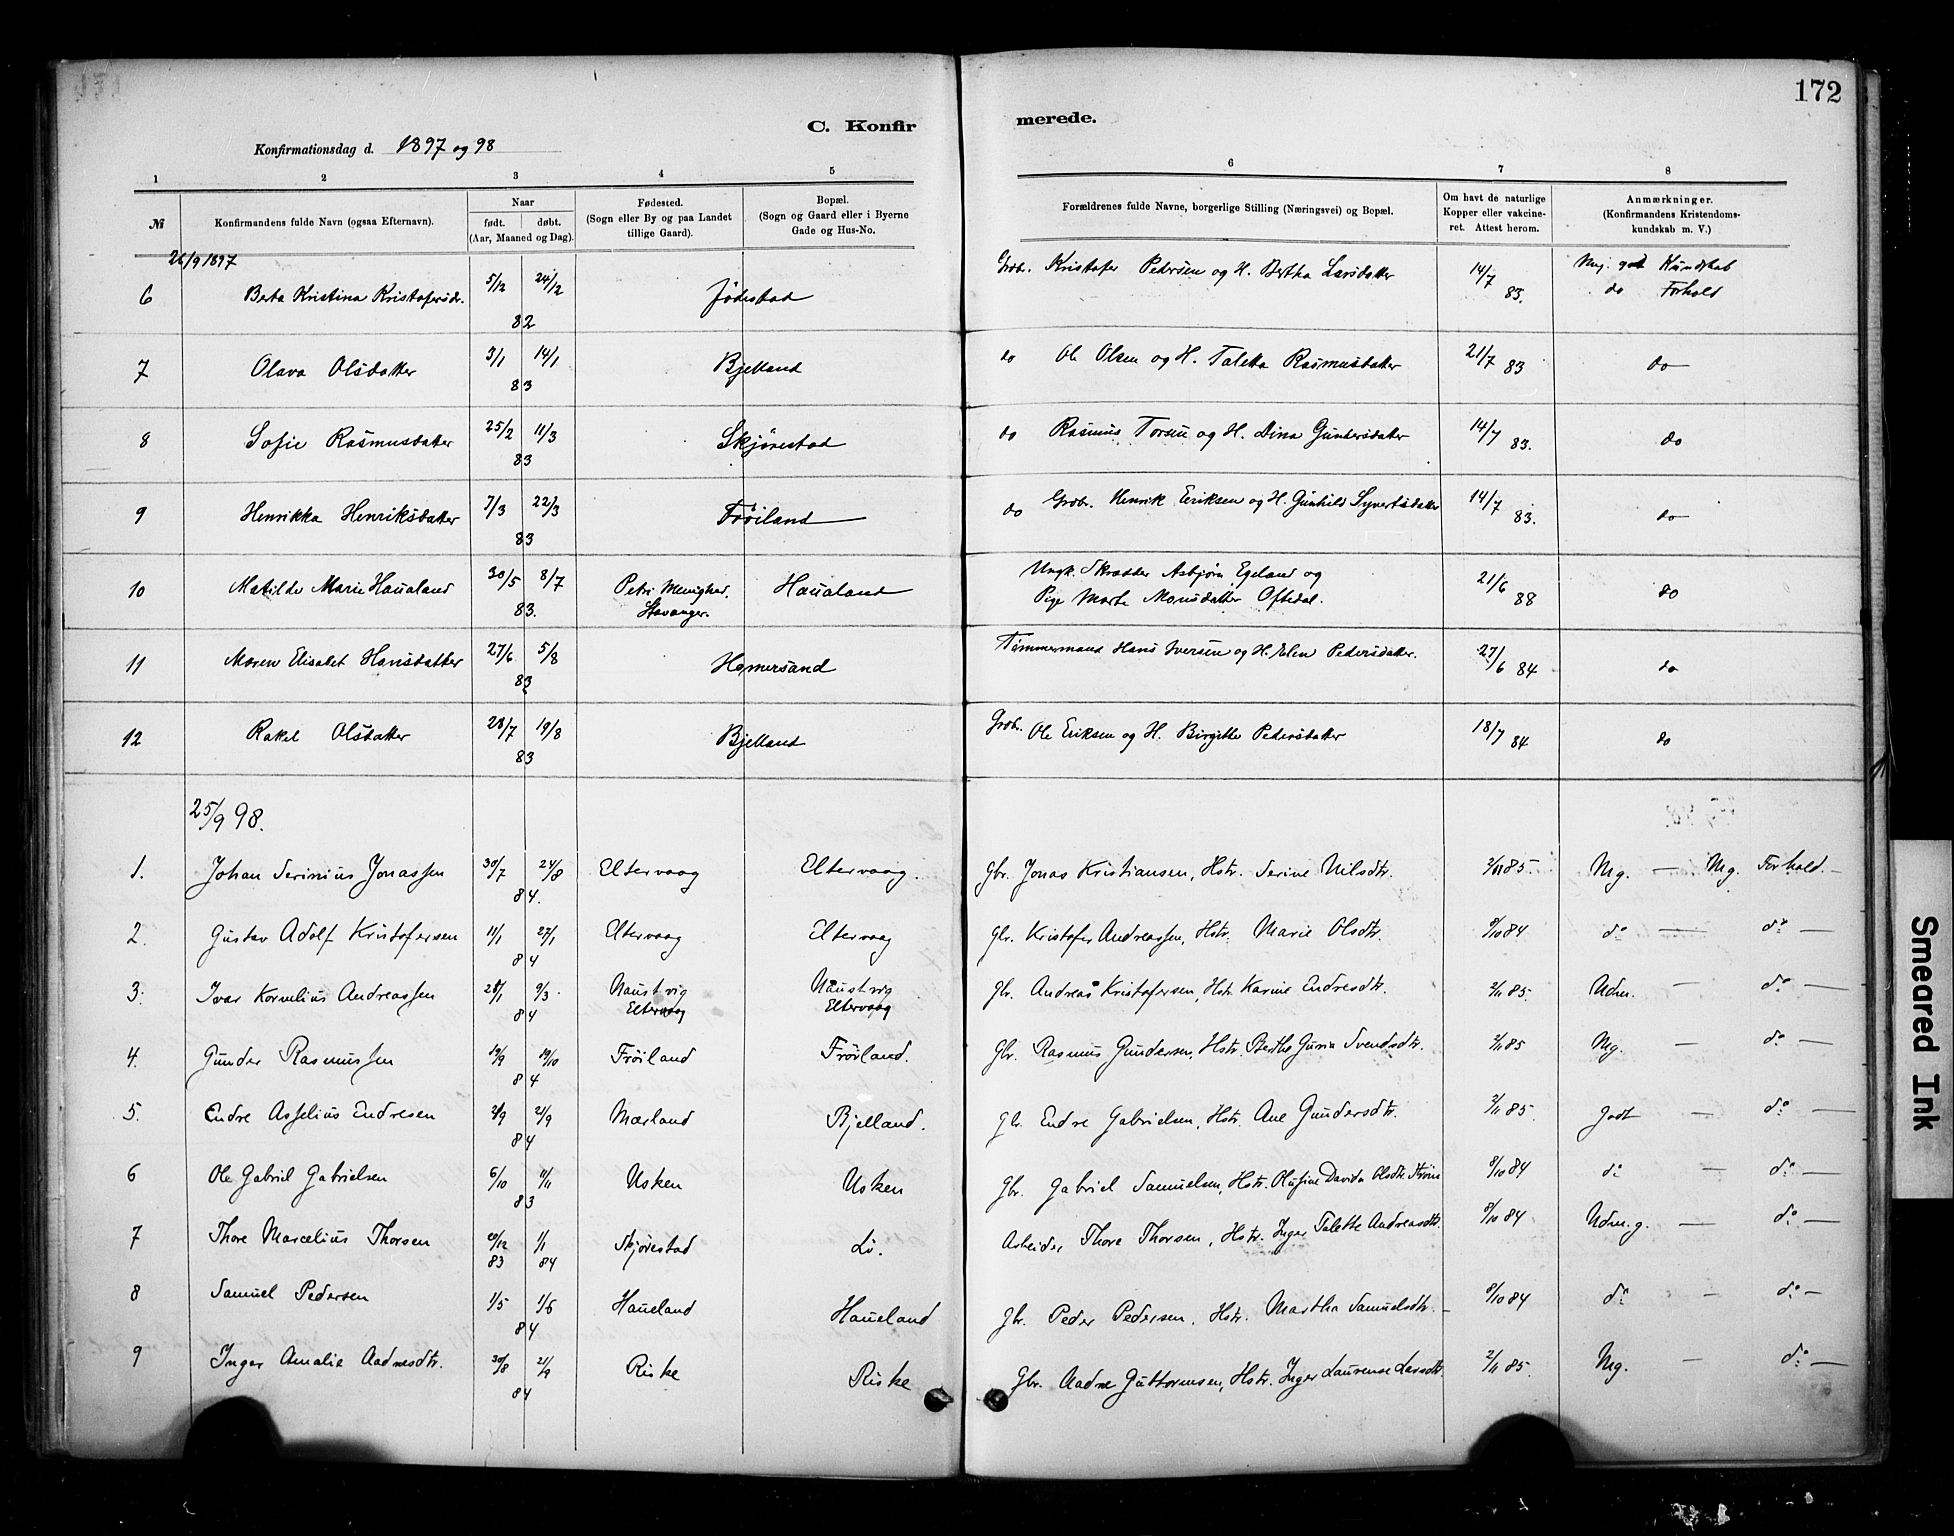 172
C. Konfir merede.
Konfirmationsdag d. 1897 og 98
1 2 3 4 5 6 7 8
№ Konfirmandens fulde Navn (ogsaa Efternavn). Naar født. døbt. (Aar, Maaned og Dag). Fødested. (Sogn eller By og paa Landet tillige Gaard). Bopæl. (Sogn og Gaard eller i Byerne Gade og Hus-No. Forældrenes fulde Navne, borgerlige Stilling (Næringsvei) og Bopæl. Om havt de naturlige Kopper eller vakcineret. Attest herom. Anmærkninger. (Konfirmandens Kristendomskundskab m. V.)
26/9 1897
6 Berta Kristina Kristofersdr. 5/12 24/12 82 Jødestad Grdbr. Kristofer Pedersen og H. Bertha Larsdatter 14/7 83. Meg. godt Kundskab do Forhold
7 Olava Olsdatter 3/1 14/1 83 Bjelland do Ole Olsen og H. Taletta Rasmusdatter 21/7 83 do
8 Sofie Rasmusdatter 25/2 11/3 83 Skjørestad do Rasmus Torsen og H. Dina Gundersdatter 14/7 83. do
9 Henrikka Henriksdatter 7/3 22/3 83 Frøiland do Grdbr. Henrik Eriksen og H. Gunhild Syvertsdatter 14/7 83. do
10 Matilde Marie Haualand 30/5 8/7 83. Petri Menighed. Stavanger. Haualand Ungk. Skrædder Asbjørn Egeland og Pige Marte Monsdatter Oftedal. 21/6 88 do
11 Maren Elisabet Hansdatter 27/6 5/8 83 Homersand Tømmermand Hans Iversen og H. Elen Pedersdatter. 27/6 84 do
12 Rakel Olsdatter 28/7 19/8 83 Bjelland Grdbr. Ole Eriksen og H. Birgitte Pedersdatter 18/7 84 do
25/9 98.
1. Johan Serinius Jonassen 30/7 24/8 84. Eltervaag Eltervaag. Gbr. Jonas Kristiansen, Hstr. Serine Nilsdtr. 85. Mg. — Mg. Forhold. —
2. Gustav Adolf Kristofersen 11/1 27/1 84 Eltervaag Eltervaag Gbr. Kristofer Andreassen, Hstr. Marie Olsdtr. 8/10 84 do — do —
3. Ivar Kornelius Andreassen 28/1 9/3 84 Naustvig Eltervaag Naustvig Eltervaag Gbr. Andreas Kristofersen, Hstr. Karine Endresdtr. 2/11 85. Udm. — do —
4. Gunder Rasmussen 19/9 19/10 84 Frøiland Frøiland. Gbr. Rasmus Gundersen, Hstr. Berthe Guria Svendsdtr. 2/11 85 Mg. — do —
5. Endre Asselius Endresen 2/9 21/9 84 Mærland Bjelland. Gbr. Endre Gabrielsen, Hstr. Ane Gundersdtr. 2/11 85. godt — do —
6 Ole Gabriel Gabrielsen 6/10 11/11 83 Usken Usken Gbr. Gabriel Samuelsen, Hstr. Olufine Davida Olsdtr. 8/10 84 do — do —
7 Thore Marcelius Thorsen 20/12 83 1/1 84 Skjørestad Li. Arbeider Thore Thorsen, Hstr. Inger Talette Andreasdtr. 8/10 84 Udm. g. — do —
8 Samuel Pedersen 1/5 1/6 84 Haueland Haueland Gbr. Peder Pedersen, Hstr. Martha Samuelsdtr. 8/10 84 do — do —
9 Inger Amalie Aadnesdtr. 30/8 21/9 84 Riske Riske Gbr. Aadne Guttormsen, Hstr. Inger Laurense Larsdtr. 2/11 85. Mg. — do —
Smeared Ink